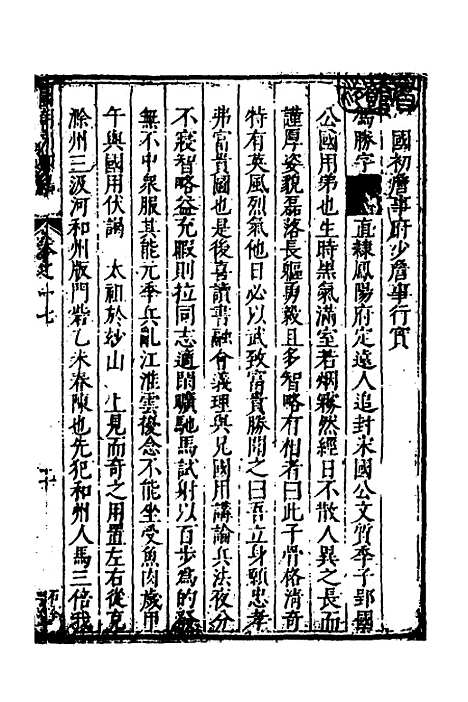 國初詹事府少詹事行實
馮勝字直隸鳳陽府定遠人追封宋國公文質季子郢國
公國用弟也生時黑氣滿室若烟霧然經日不散人異之長而
謹厚姿貌磊落長軀勇毅且多智略有相者曰此子骨格清奇
特有英風烈氣他日必以武致富貴勝聞之曰吾立身顯忠孝
弗富貴圖也是後喜讀書融會義理與兄國用講論兵法夜分
不寢智略益充暇則拉同志適閒曠馳馬試射以百步為的發
無不中衆服其能元季兵亂江淮雲擾念不能坐受魚肉歲甲
午與國用伏謁 太祖於妙山 上見而奇之用置左右從克
滁州三汊河和州版門砦乙未春陳也先犯和州人馬三倍我
十七